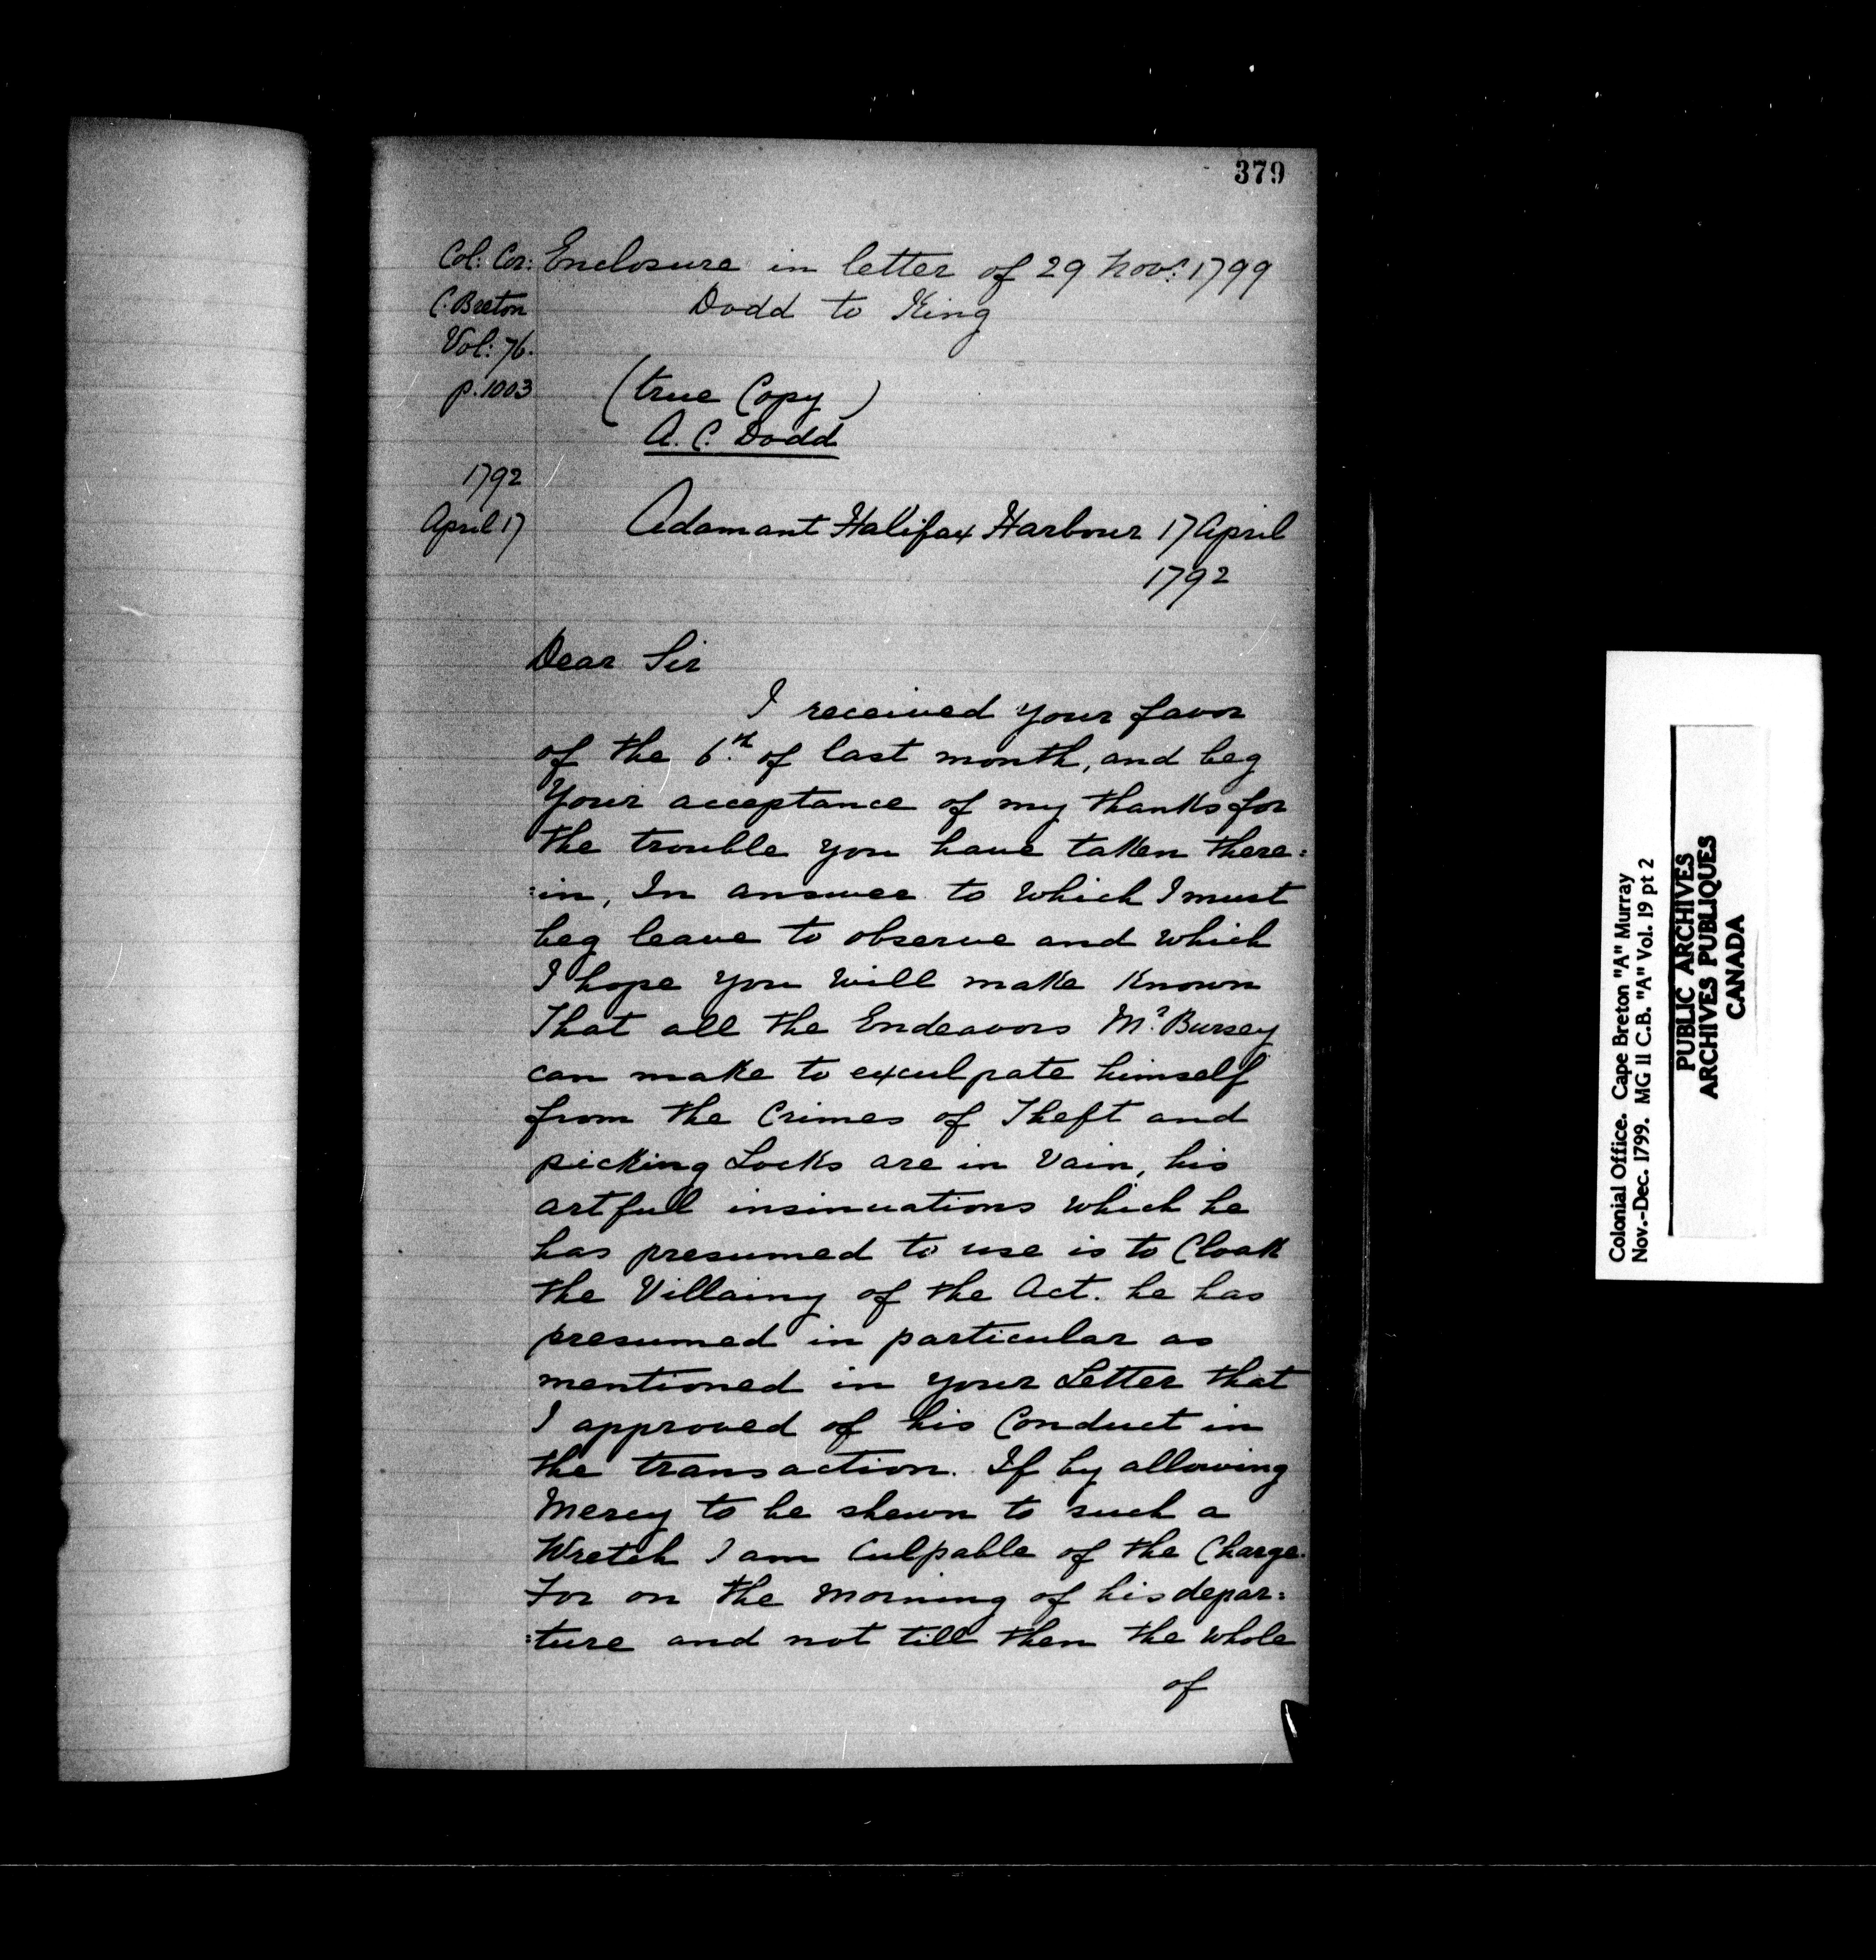 379
Col: Cor: Enclosure in letter of 29 Novr. 1799
C. Breton Dodd to King
Vol: 76.
p. 1003 (true Copy)
A. C. Dodd
1792
April 17 Adamant Halifax Harbour 17 April
1792
Dear Sir
I received your favor
of the 6th. of last month, and beg
Your acceptance of my thanks for
the trouble you have taken there:
:in, In answer to which I must
beg leave to observe and which
I hope you will make known
That all the Endeavors Mr. Bursey
can make to exculpate himself
from the Crimes of Theft and
picking Locks are in Vain, his
artful insinuations which he
has presumed to use is to Cloak
the Villainy of the Act. he has
presumed in particular as
mentioned in your Letter that
I approved of his Conduct in
the transaction. If by allowing
Mercy to be shewn to such a
Wretch I am Culpable of the Charge.
For on the Morning of his depar:
:ture and not till then the whole
of
Colonial Office. Cape Breton "A" Murray
Nov.-Dec. 1799. MG 11 C.B. "A" Vol. 19 pt 2
PUBLIC ARCHIVES
ARCHIVES PUBLIQUES
CANADA